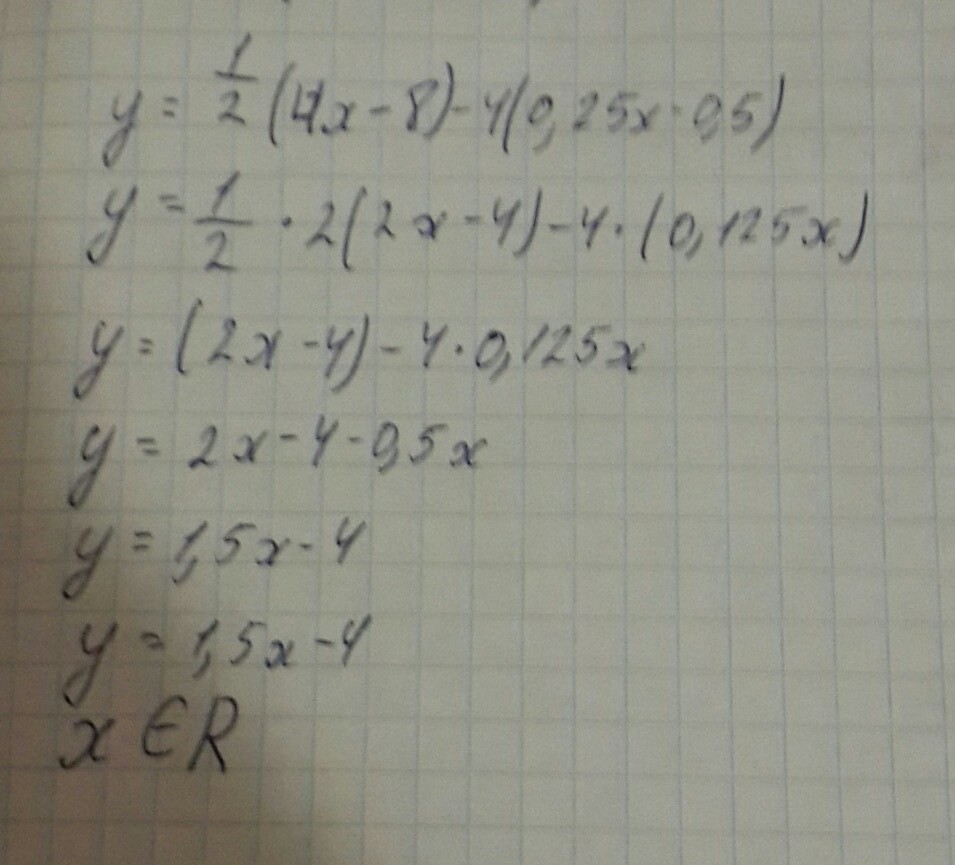 y = 1/2 (4x - 8) - 4(0,25x · 0,5)
y = 1/2 · 2(2x - 4) - 4 · (0,125x)
y = (2x - 4) - 4 · 0,125x
y = 2x - 4 - 0,5x
y = 1,5x - 4
y = 1,5x - 4
x ∈ R